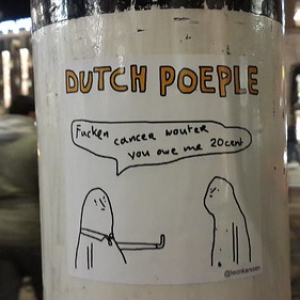 DUTCH POEPLE
Fucken
cancer wouter
you owe me 20cent
@leonkarssen